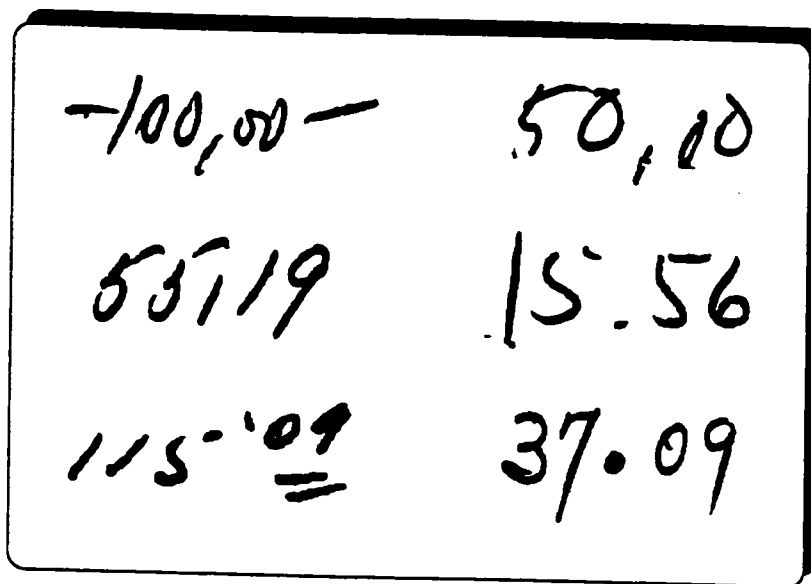 -100,00- 50,10
55,19 15.56
115'09 37.09